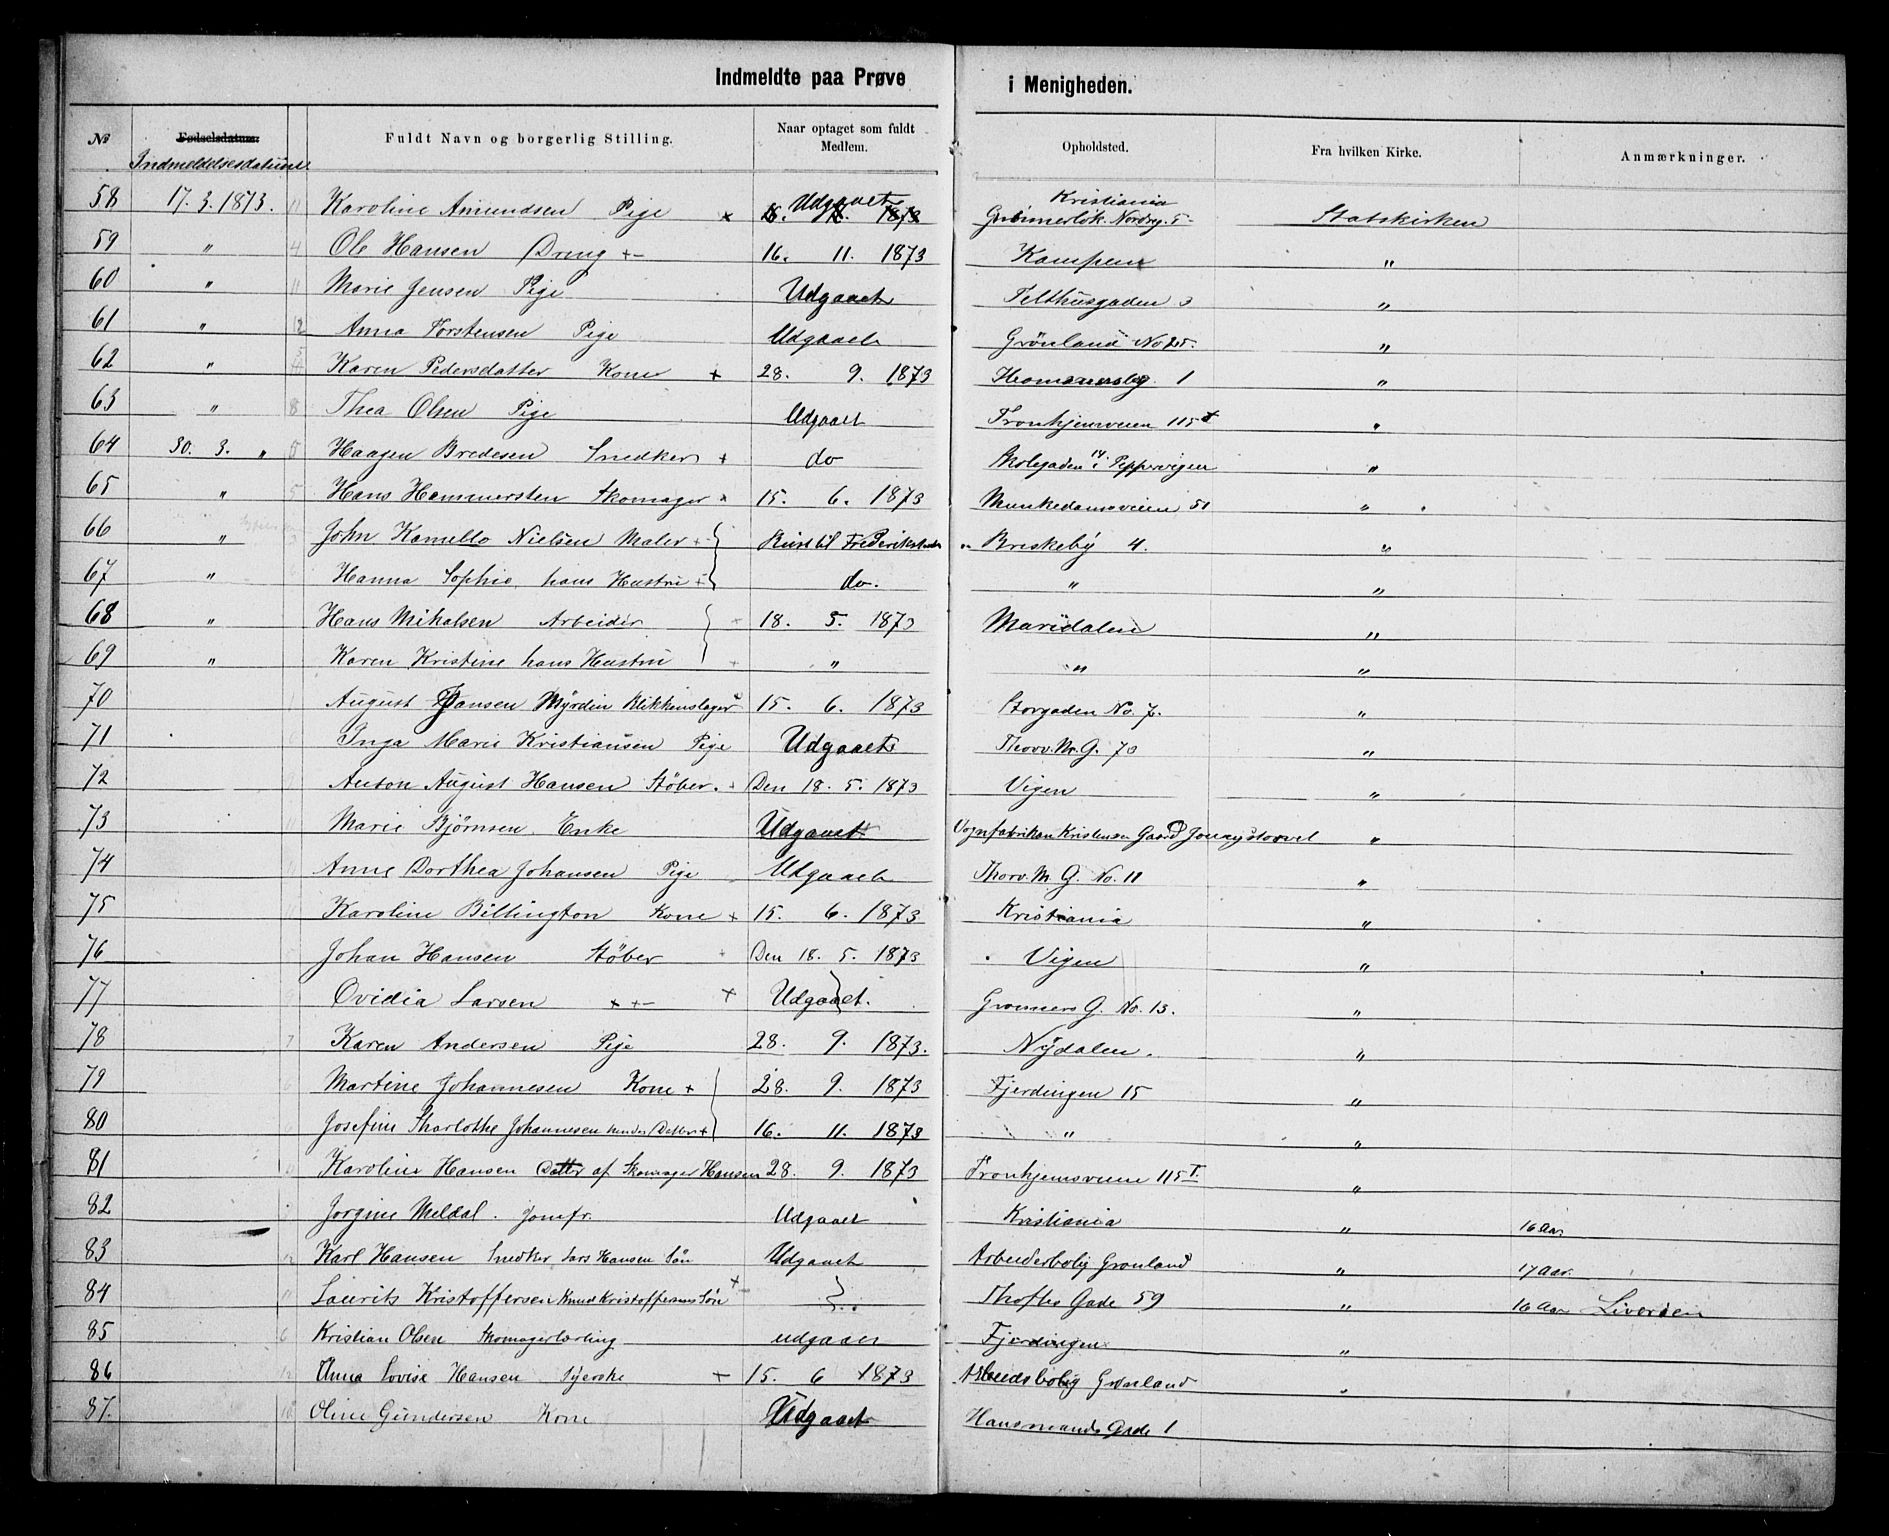 Indmeldte paa Prøve i Menigheden.
№ Fødselsdatum. Fuldt Navn og borgerlig Stilling. Naar optaget som fuldt Medlem. Opholdsted. Fra hvilken Kirke. Anmærkninger.
Indmeldelsesdatum
Kristiania
58 17. 3. 1873. Karoline Amundsen Pige Udgaaet 1873 Nordrg. 5 Statskirken
59 " Ole Hansen Dreng 16. 11. 1873 Kampen "
60 " Marie Jensen Pige Udgaaet Telthusgaden 3 "
61 " Anna Torstensen Pige Udgaaet Grönland No 25. "
62 " Karen Pedersdatter Kone + 28. 9. 1873 1 "
63 " Thea Olsen Pige Udgaaet Tronhjemsveien 115 "
64 30. 3. " Haagen Bredesen Snedker + do Skolegaden 14 i Pippervigen "
65 " Hans Hammersten Skomager 15. 6. 1873 Munkedamsveien 51 "
66 " John Kamello Nielsen Maler + Reist til Frederikstad Briskeby 4. "
67 " Hanna Sophie, hans Hustru + do. " "
68 " Hans Mikalsen Arbeider 18. 5. 1873 Maridalen "
69 " Karen Kristine hans Hustru " " "
70 August Hansen Myrdin Blikkenslager 15. 6. 1873 Storgaden No. 7. "
71 Inga Marie Kristiansen Pige Udgaaet Thorv. M. G. 70 "
72 Anton August Hansen Støber. Den 18. 5. 1873 Vigen "
73 Marie Bjørnsen. Enke Udgaaet Vognfabrikan Kristensen Gaard "
74 Anne Dorthea Johansen Pige Udgaaet Thorv. M. G. No. 11 "
75 Karoline Billington Kone + 15. 6. 1873 Kristiania "
76 Johan Hansen Støber Den 18. 5. 1873 Vigen "
77 Ovidia Larsen + Udgaaet. Grønners G. No. 13. "
78 Karen Andersen Pige 28. 9. 1873. Nydalen. "
79 Martine Johannesen Kone + 28. 9. 1873 Fjerdingen 15 "
80 Josefine Sharlothe Johannesen hendes Datter + 16. 11. 1873 " "
81 Karoline Hansen Dattr af Skomager Hansen 28. 9. 1873 Tronhjemsveien 115 I. "
82 Jorgine Meldal. Jomfr. Udgaaet Kristiania " 16 Aar
83 Karl Hansen Snedker Lars Hansen Søn Udgaaet Arbeiderbolig Grønland " 17 Aar.
84 Laurits Kristoffersen Knud Kristoffersens Søn + Thoftes Gade 59 " 16 Aar
85 Kristian Olsen Skomagerlærling udgaaet Fjerdingen "
86 Anna Lovise Hansen Syerske + 15. 6 1873 Arbeidsbolig Grønland "
87. Oline Gundersen Kone Udgaaet Hausmands Gade 1